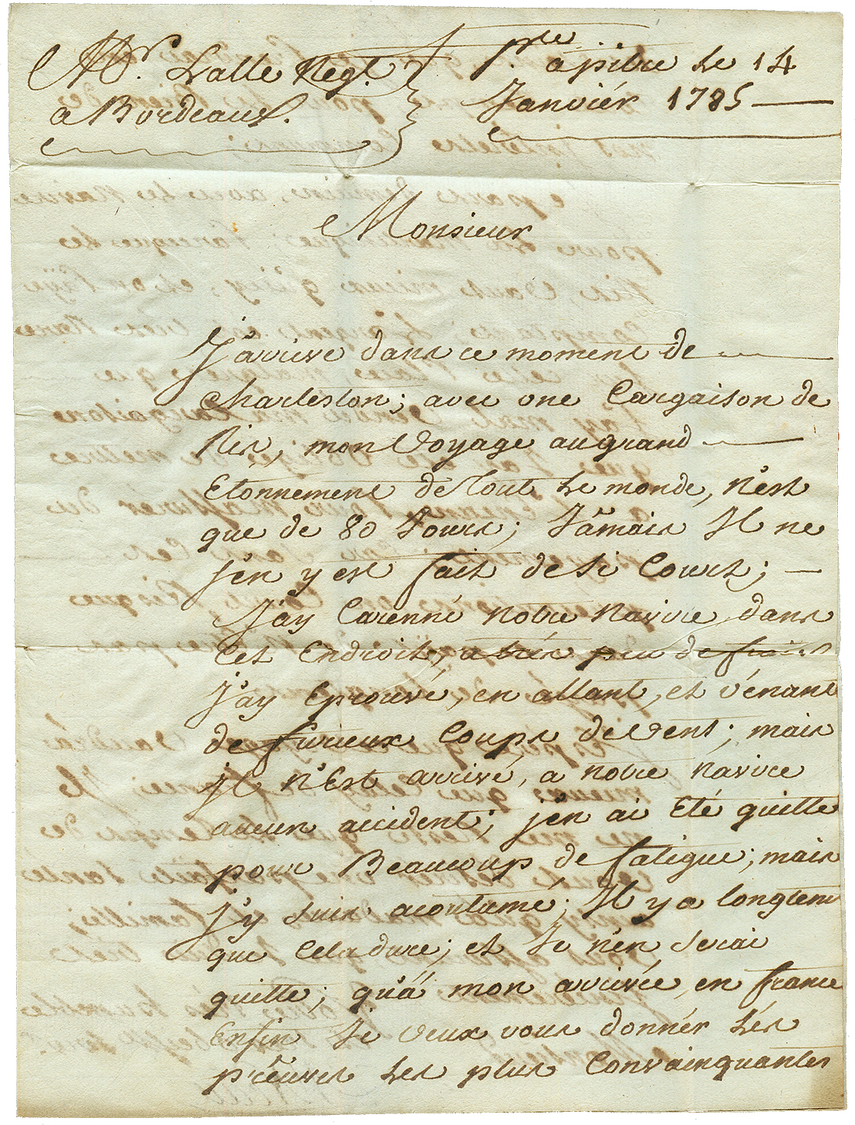 Mr. Lalle Negt. Pte. apitre Le 14
a Bordeaux. Janviér 1785
Monsieur
J'arive dans ce moment de
Charleston; avec une Cargaison de
Ris, mon Voyage au grand
Etonnement de tout Le monde, n'est
que de 80 Jours; Jamais Il ne
s'en y est fait de Si Court;
J'ay Carenné notre navire dans
Cet Endroit, a bien peu de frais
J'ay Eprouvé, en allant, et vénant
de furieux Coups de vent; mais
il n'Est arrivé, a notre navire
aucun accident; j'en ai Eté quitte
pour Beaucoup de fatigue; mais
J'y suis acoutumé; Il y a longtems
que Cela dure; et Je n'en serai
quitte; qu'á mon arivée, en france
Enfin Je veux vous donnér Lés
préuves Les plus Convainquantes